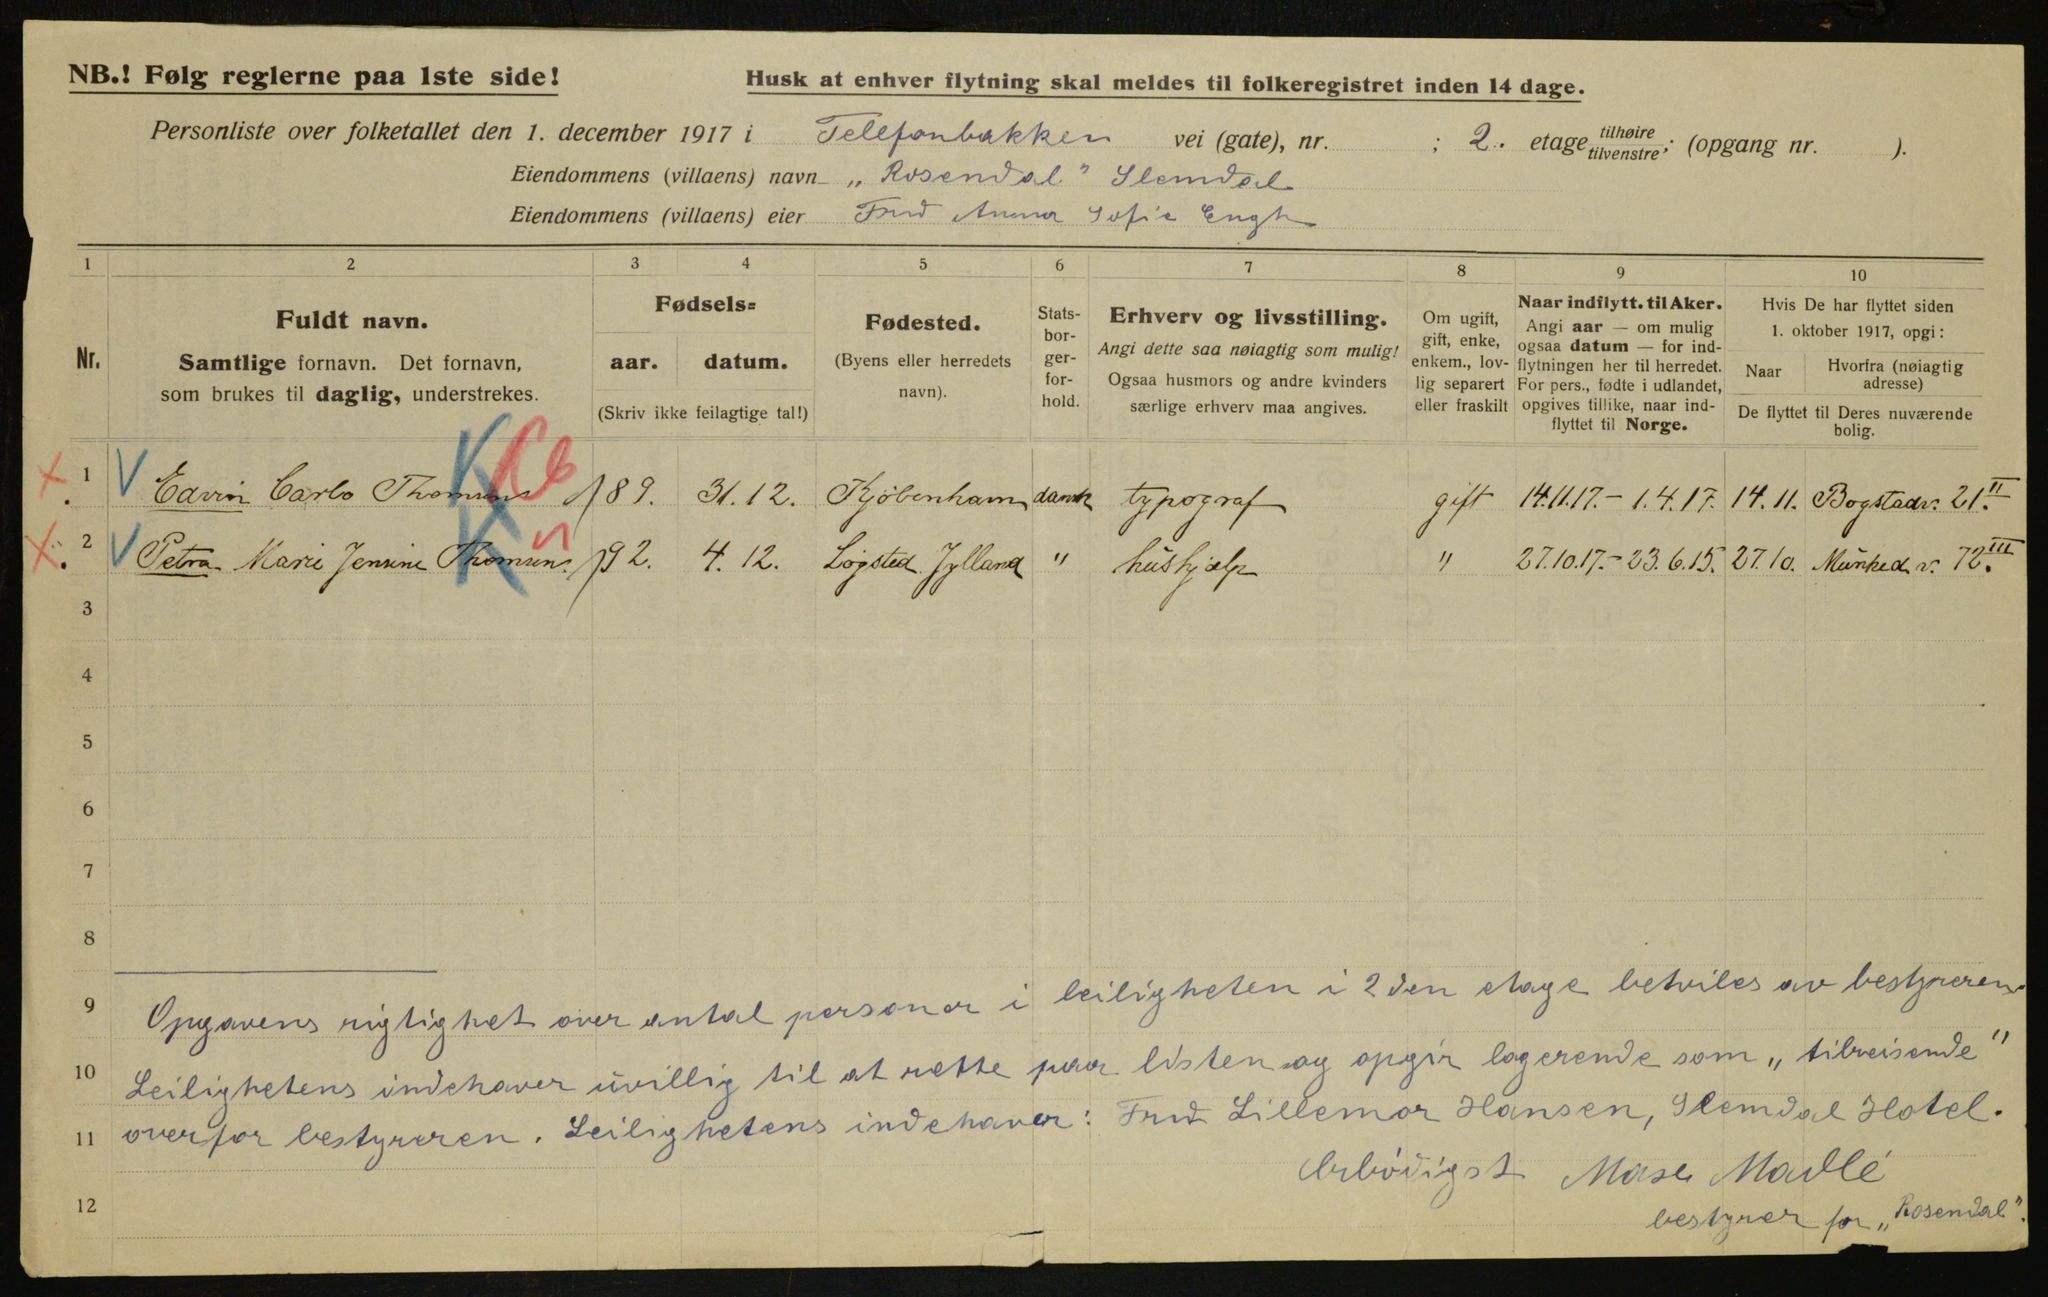 NB.! Følg reglerne paa 1ste side!
Husk at enhver flytning skal meldes til folkeregistret inden 14 dage.
Personliste over folketallet den 1. december 1917 i Telefonbakken vei (gate), nr. ; 2. etage tilhøire tilvenstre; (opgang nr. ).
Eiendommens (villaens) navn „Rosendal" Slemdal
Eiendommens (villaens) eier Frud Anna Sofie Engh
1 2 3 4 5 6 7 8 9 10
Nr.
Fuldt navn.
Samtlige fornavn. Det fornavn,
som brukes til daglig, understrekes.
Fødsels=
aar. datum.
(Skriv ikke feilagtige tal!)
Fødested.
(Byens eller herredets
navn).
Stats-
bor-
ger-
for-
hold.
Erhverv og livsstilling.
Angi dette saa nøiagtig som mulig!
Ogsaa husmors og andre kvinders
særlige erhverv maa angives.
Om ugift,
gift, enke,
enkem., lov-
lig separert
eller fraskilt
Naar indflytt. til Aker.
Angi aar — om mulig
ogsaa datum — for ind-
flytningen her til herredet.
For pers., fødte i udlandet,
opgives tillike, naar ind-
flyttet til Norge.
Hvis De har flyttet siden
1. oktober 1917, opgi:
Naar Hvorfra (nøiagtig
adresse)
De flyttet til Deres nuværende
bolig.
1 Edvin Carlo Thomsens 89. 31.12. Kjöbenham dansk typograf gift 14.11.17.- 1.4.17. 14.11. Bogstadv. 21.II
2 Petra Marie Jensine Thomsens 92. 4.12. Lögsted Jylland " hushjælp " 27.10.17.- 23.6.15. 27.10. Munked v. 72.III
3
4
5
6
7
8
9 Opgavens rigtighet over antal personer i leiligheten i 2den etage betviles av bestyreren.
10 Leilighetens indehaver uvillig til at rette paa listen og opgir logerende som „tilreisende"
11 overfor bestyreren. Leilighetens indehaver: Frud Lillemor Hansen, Slemdal Hotel.
Erbödigst Madlé
12 bestyrer for „Rosendal".